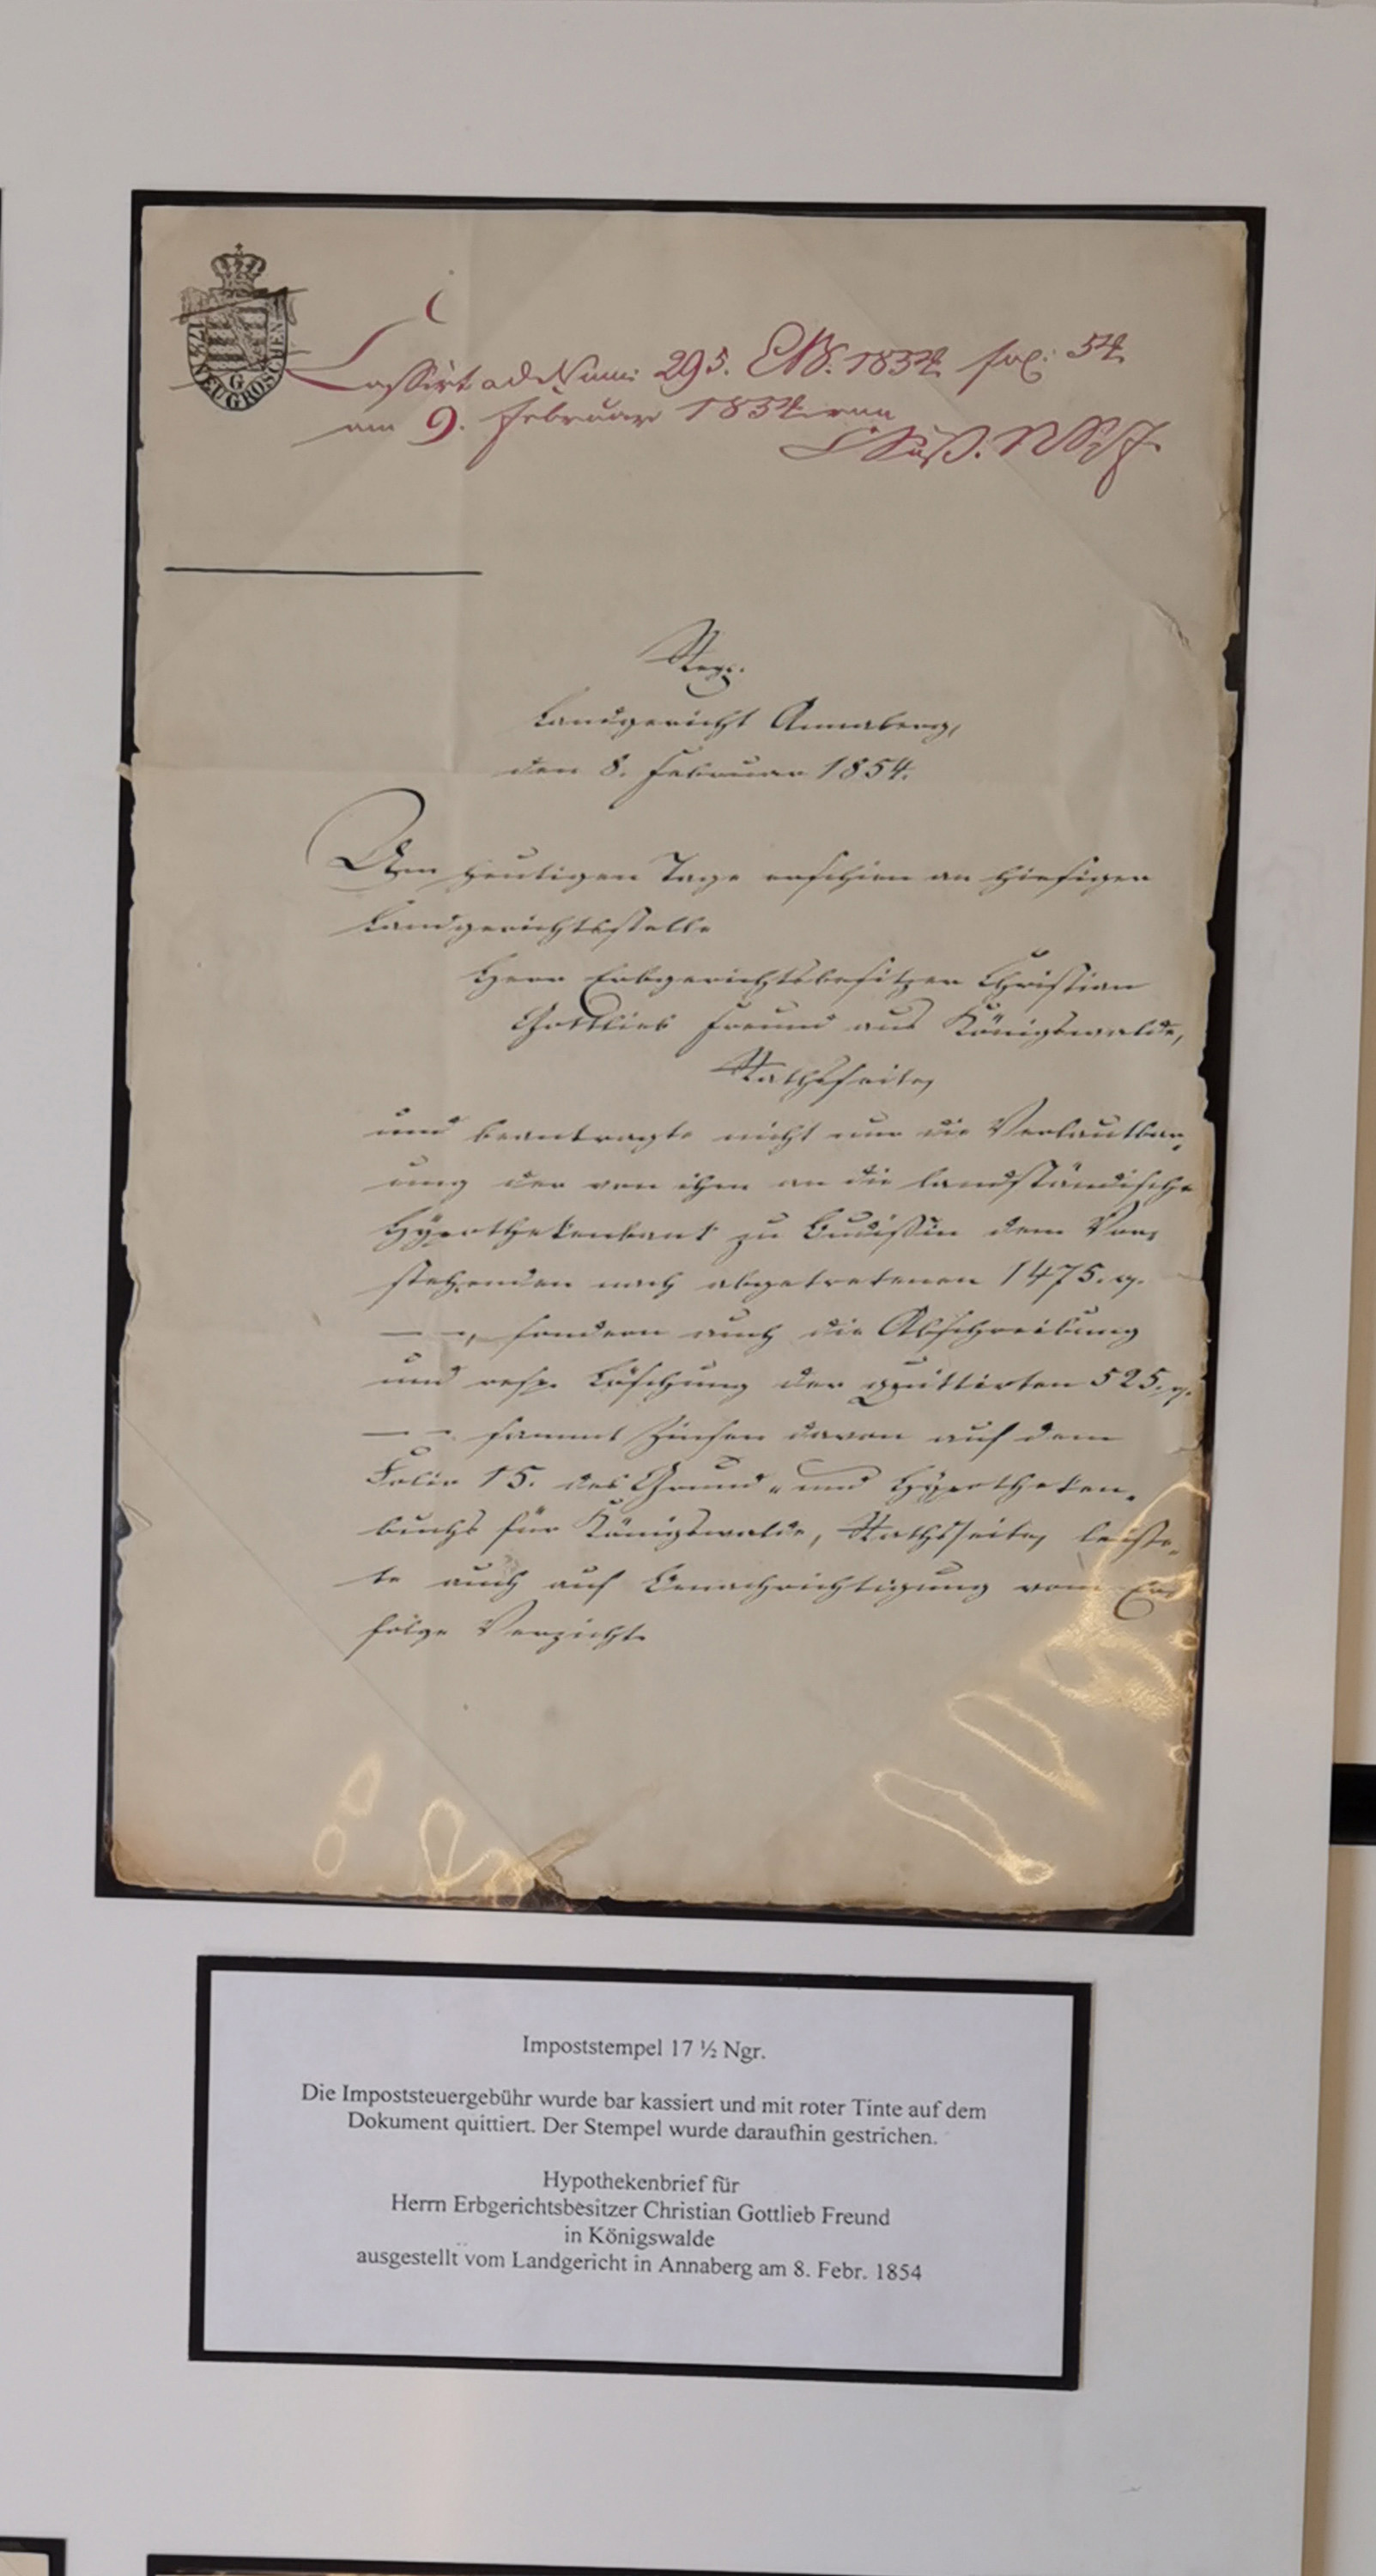 17½
G
NEUGROSCHEN
Cassirt ad Num: 295. 1854 fol: 54
am 9. Februar 1854
Reg.
Landgericht Annaberg,
den 8. Februar 1854.
Am heutigen Tage erschien an hiesiger
Landgerichtsstelle
Herr Erbgerichtsbesitzer Christian
Gottlieb Freund aus Königswalde,
Rathsseite,
und beantragte nicht nur die Verlautbar,
ung der von ihm an die landständische
Hypothekenbank zu Budissin dem Vor,
stehenden nach abgetretenen 1475.
— –, sondern auch die Abschreibung
und resp. Löschung der quittirten 525.
— – sammt Zinsen davon auf dem
Folio 15. des Grund- und Hypotheken,
buchs für Königswalde, Rathsseite, leiste,
te auch auf Benachrichtigung vom Er,
folge Verzicht.
Impoststempel 17 ½ Ngr.
Die Impoststeuergebühr wurde bar kassiert und mit roter Tinte auf dem
Dokument quittiert. Der Stempel wurde daraufhin gestrichen.
Hypothekenbrief für
Herrn Erbgerichtsbesitzer Christian Gottlieb Freund
in Königswalde
ausgestellt vom Landgericht in Annaberg am 8. Febr. 1854